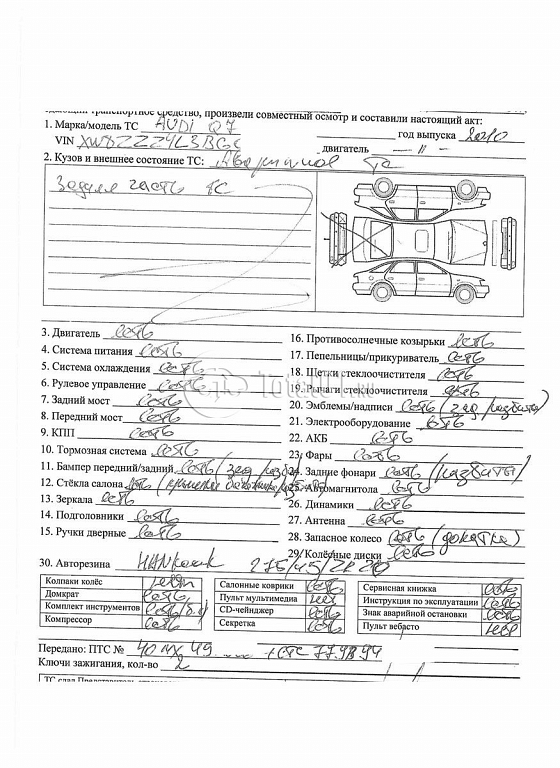 дующий транспортное средство, произвели совместный осмотр и составили настоящий акт:
1. Марка/модель ТС AUDI Q7 год выпуска 2010
VIN двигатель — 11 —
2. Кузов и внешнее состояние ТС: Аварийное ТС
Задняя часть ТС
3. Двигатель есть
4. Система питания есть
5. Система охлаждения есть
6. Рулевое управление есть
7. Задний мост есть
8. Передний мост есть
9. КПП есть
10. Тормозная система есть
11. Бампер передний/задний есть / зад разбит
12. Стёкла салона есть
13. Зеркала есть
14. Подголовники есть
15. Ручки дверные есть
16. Противосолнечные козырьки есть
17. Пепельницы/прикуриватель есть
18. Щетки стеклоочистителя есть
19. Рычаги стеклоочистителя есть
20. Эмблемы/надписи есть (зад разбит)
21. Электрооборудование есть
22. АКБ есть
23. Фары есть
24. Задние фонари есть (разбиты)
25. Автомагнитола есть
26. Динамики есть
27. Антенна есть
28. Запасное колесо есть (докатка)
29. Колёсные диски есть
30. Авторезина HANkook 275/45/ZR20
Колпаки колёс нет
Домкрат есть
Комплект инструментов есть
Компрессор есть
Салонные коврики есть
Пульт мультимедиа нет
CD-чейнджер есть
Секретка есть
Сервисная книжка есть
Инструкция по эксплуатации есть
Знак аварийной остановки есть
Пульт вебасто нет
Передано: ПТС № 40 МХ 49 СТС 77 УВ 94
Ключи зажигания, кол-во 2